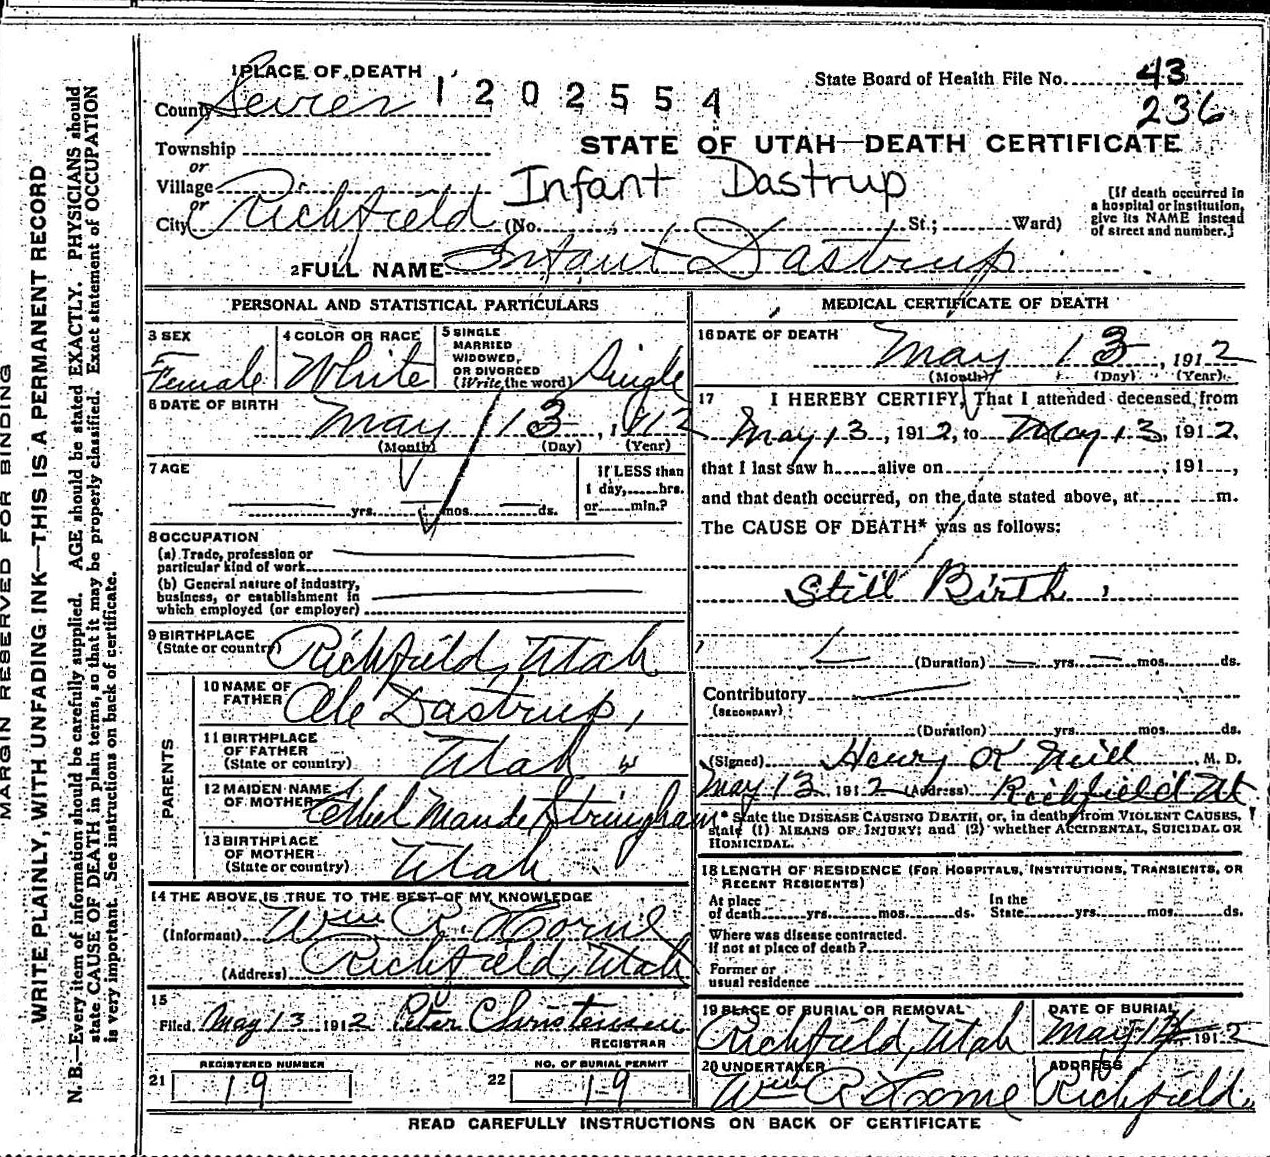 1 PLACE OF DEATH
County Sevier
1202554
State Board of Health File No. 43
236
Township
or
Village
or
City Richfield (No. St.; Ward)
STATE OF UTAH—DEATH CERTIFICATE
Infant Dastrup
[If death occurred in
a hospital or institution,
give its NAME instead
of street and number.]
2 FULL NAME Infant Dastrup
PERSONAL AND STATISTICAL PARTICULARS
3 SEX
Female
4 COLOR OR RACE
White
5 SINGLE
MARRIED
WIDOWED,
OR DIVORCED
(Write the word) Single
6 DATE OF BIRTH
May 13, 1912
(Month) (Day) (Year)
7 AGE
yrs. mos. ds.
If LESS than
1 day, hrs.
or min.?
8 OCCUPATION
(a) Trade, profession or
particular kind of work
(b) General nature of industry,
business, or establishment in
which employed (or employer)
9 BIRTHPLACE
(State or country) Richfield, Utah
PARENTS
10 NAME OF
FATHER Dastrup,
11 BIRTHPLACE
OF FATHER
(State or country) Utah
12 MAIDEN NAME
OF MOTHER Ethel Maude Stringham
13 BIRTHPLACE
OF MOTHER
(State or country) Utah
14 THE ABOVE IS TRUE TO THE BEST OF MY KNOWLEDGE
(Informant) Wm R. Horne
(Address) Richfield, Utah
15
Filed May 13 1912 Peter Christensen
REGISTRAR
REGISTERED NUMBER
21 19
NO. OF BURIAL PERMIT
22 19
MEDICAL CERTIFICATE OF DEATH
16 DATE OF DEATH
May 13, 1912
(Month) (Day) (Year)
17 I HEREBY CERTIFY, That I attended deceased from
May 13, 1912, to May 13, 1912,
that I last saw h alive on , 191 ,
and that death occurred, on the date stated above, at m.
The CAUSE OF DEATH* was as follows:
Still Birth,
(Duration) yrs. mos. ds.
Contributory
(SECONDARY)
(Duration) yrs. mos. ds.
(Signed) Henry K Neill M. D.
May 13, 1912 (Address) Richfield Ut
* State the DISEASE CAUSING DEATH, or, in death from VIOLENT CAUSES,
state (1) MEANS OF INJURY; and (2) whether ACCIDENTAL, SUICIDAL OR
HOMICIDAL.
18 LENGTH OF RESIDENCE (FOR HOSPITALS, INSTITUTIONS, TRANSIENTS, OR
RECENT RESIDENTS)
At place
of death yrs. mos. ds.
In the
State yrs. mos. ds.
Where was disease contracted.
If not at place of death?
Former or
usual residence
19 PLACE OF BURIAL OR REMOVAL
Richfield, Utah
DATE OF BURIAL
May 1912
20 UNDERTAKER
Wm R Horne
ADDRESS
Richfield.
READ CAREFULLY INSTRUCTIONS ON BACK OF CERTIFICATE
MARGIN RESERVED FOR BINDING
WRITE PLAINLY, WITH UNFADING INK—THIS IS A PERMANENT RECORD
N. B.—Every item of information should be carefully supplied. AGE should be stated EXACTLY. PHYSICIANS should
state CAUSE OF DEATH in plain terms, so that it may be properly classified. Exact statement of OCCUPATION
is very important. See instructions on back of certificate.